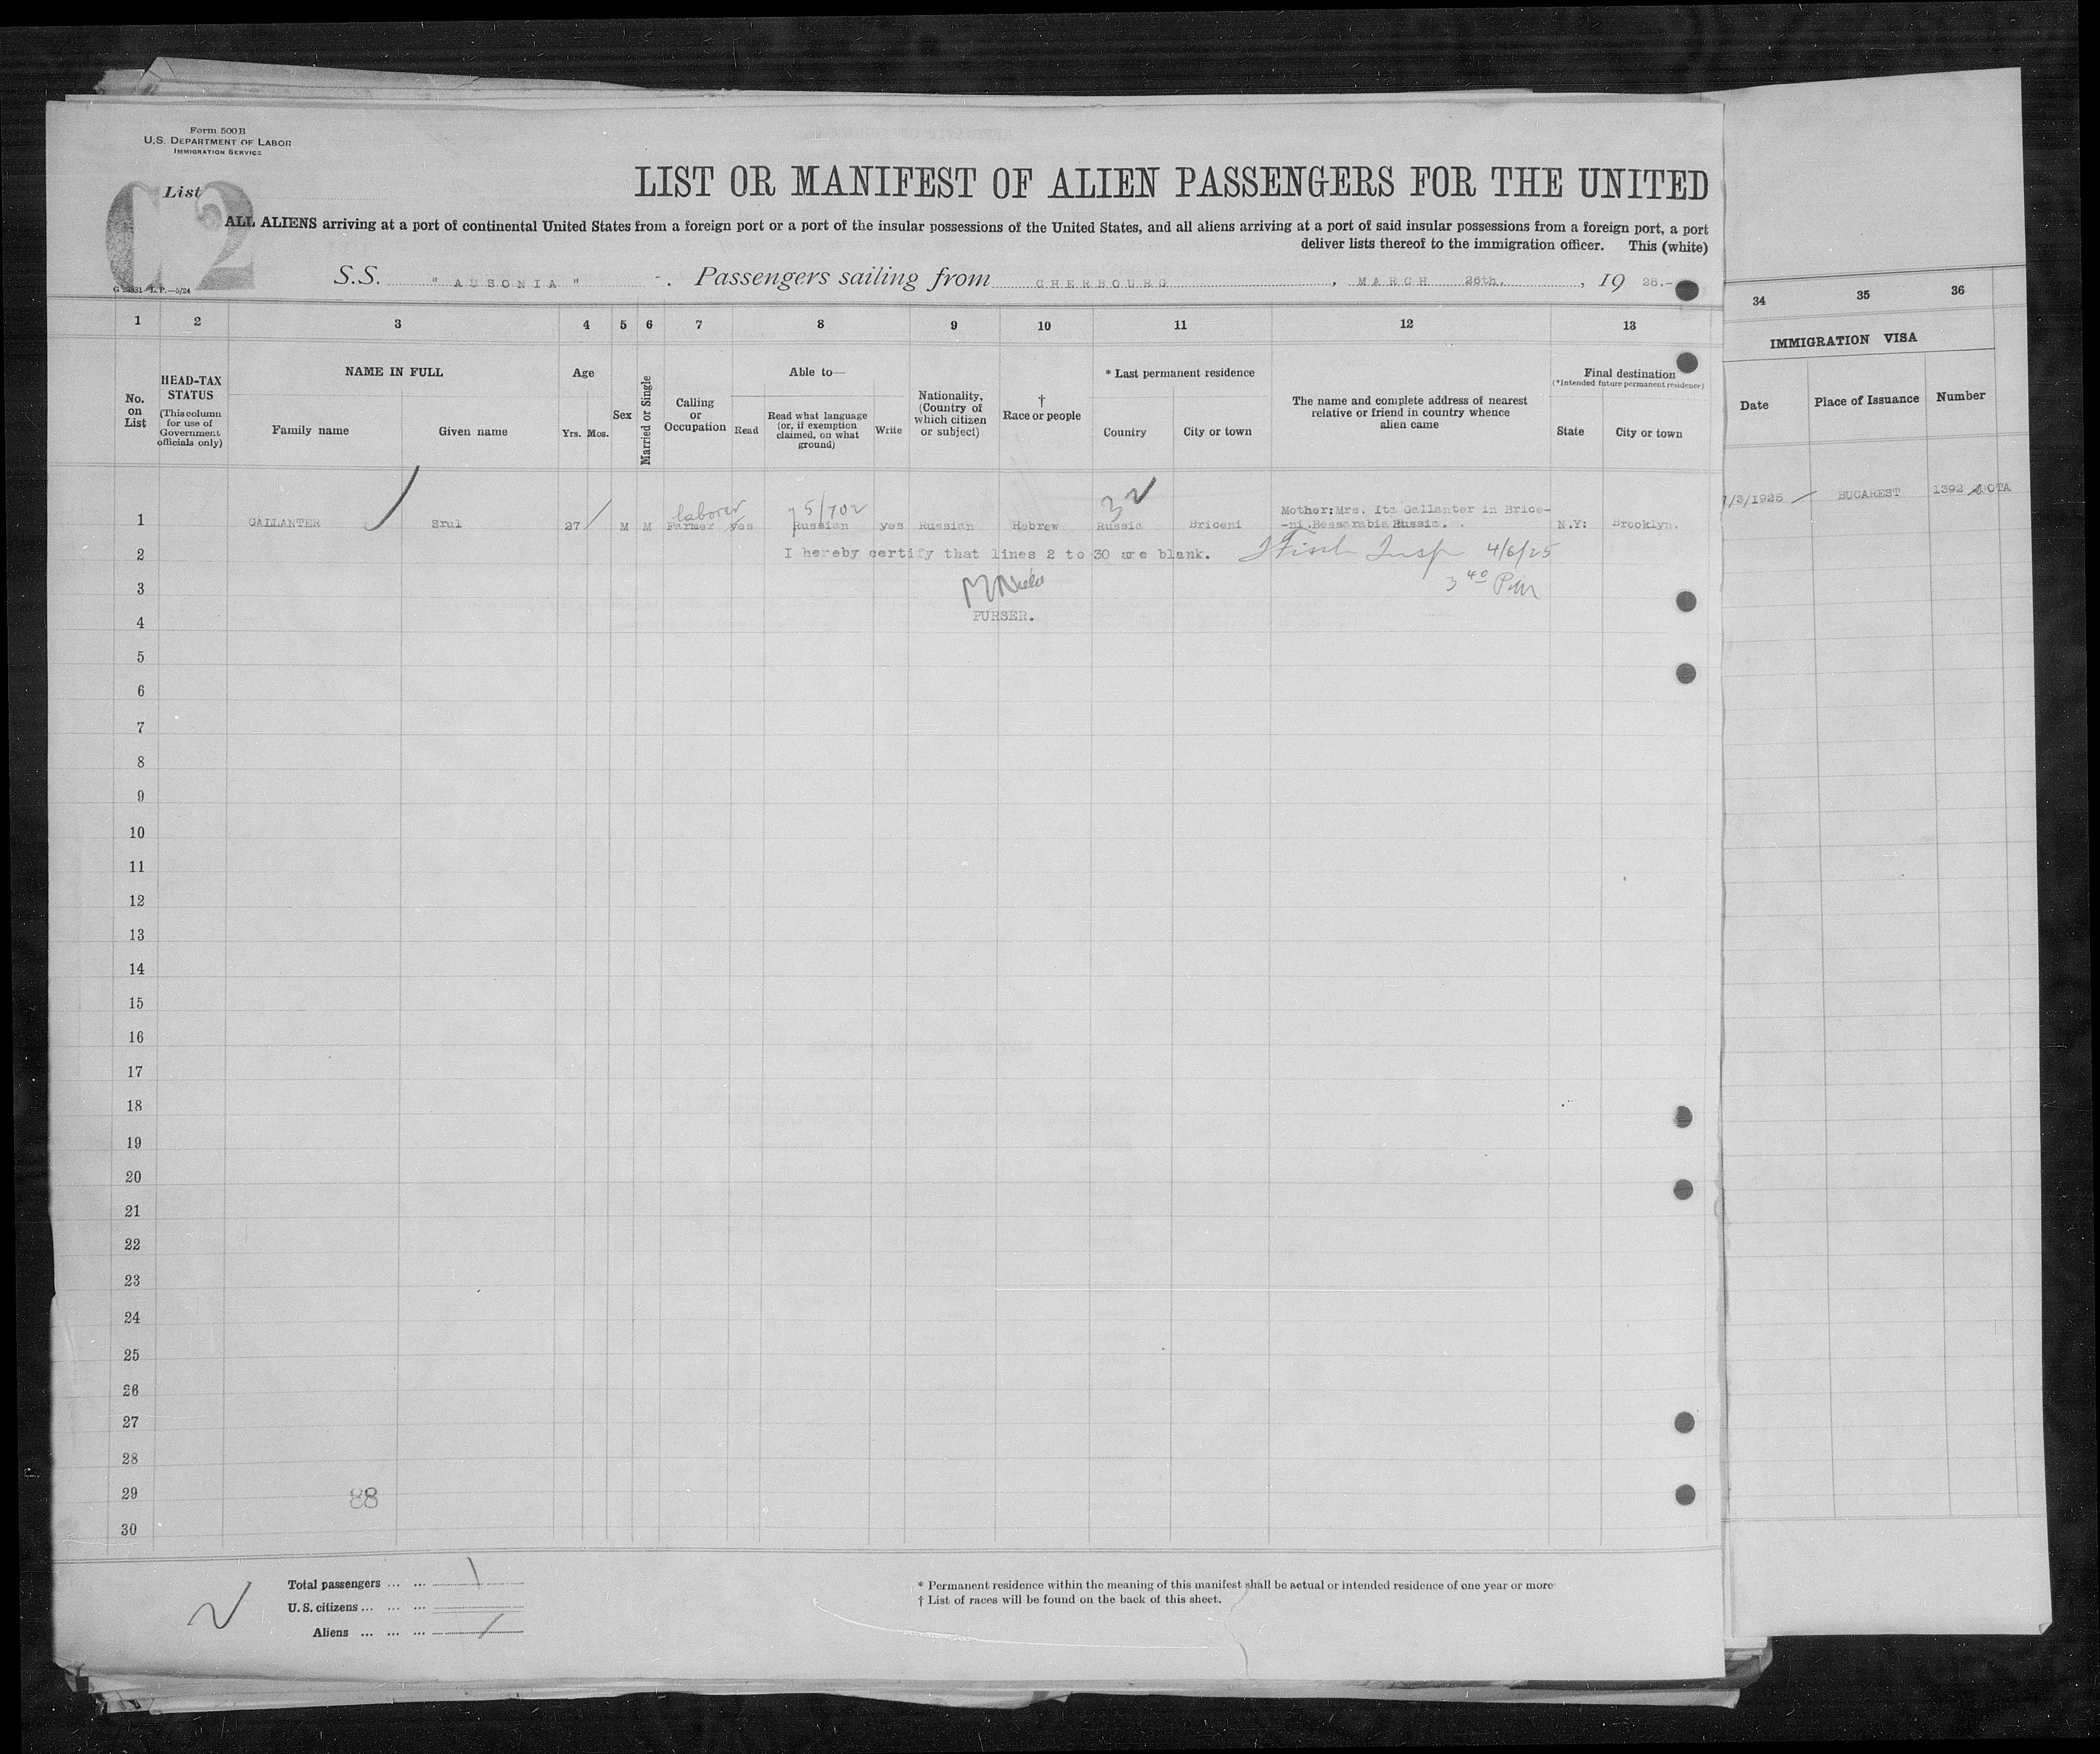 Form 500B
U.S. DEPARTMENT OF LABOR
IMMIGRATION SERVICE
List
C2
LIST OR MANIFEST OF ALIEN PASSENGERS FOR THE UNITED
ALL ALIENS arriving at a port of continental United States from a foreign port or a port of the insular possessions of the United States, and all aliens arriving at a port of said insular possessions from a foreign port, a port
deliver lists thereof to the immigration officer. This (white)
S.S. " AUSONIA " Passengers sailing from CHERBOURG, MARCH 26th, 19 25.-
L. P.—5/24
1 2 3 4 5 6 7 8 9 10 11 12 13
34 35 36
IMMIGRATION VISA
Date Place of Issuance Number
No. on List
HEAD-TAX STATUS
(This column for use of Government officials only)
NAME IN FULL
Family name Given name
Age
Yrs. Mos.
Sex
Married or Single
Calling or Occupation
Able to—
Read
Read what language (or, if exemption claimed, on what ground)
Write
Nationality, (Country of which citizen or subject)
† Race or people
* Last permanent residence
Country City or town
The name and complete address of nearest relative or friend in country whence alien came
Final destination
(*Intended future permanent residence)
State City or town
laborer 5/702 32
1 GALLANTER Srul 27 M M Farmer yes Russian yes Russian Hebrew Russia Briceni
Mother:Mrs. Ita Gallanter in Brice-
-ni.Bessarabia Russia. . N.Y: Brooklyn.
/3/1925 BUCAREST 1392 QUOTA
2 I hereby certify that lines 2 to 30 are blank. Insp 4/6/25
3 3 40 PM
PURSER.
4
5
6
7
8
9
10
11
12
13
14
15
16
17
18
19
20
21
22
23
24
25
26
27
28
29 88
30
Total passengers ... ... 1
U.S. citizens ... ... ...
Aliens ... ... ... 1
* Permanent residence within the meaning of this manifest shall be actual or intended residence of one year or more
† List of races will be found on the back of this sheet.